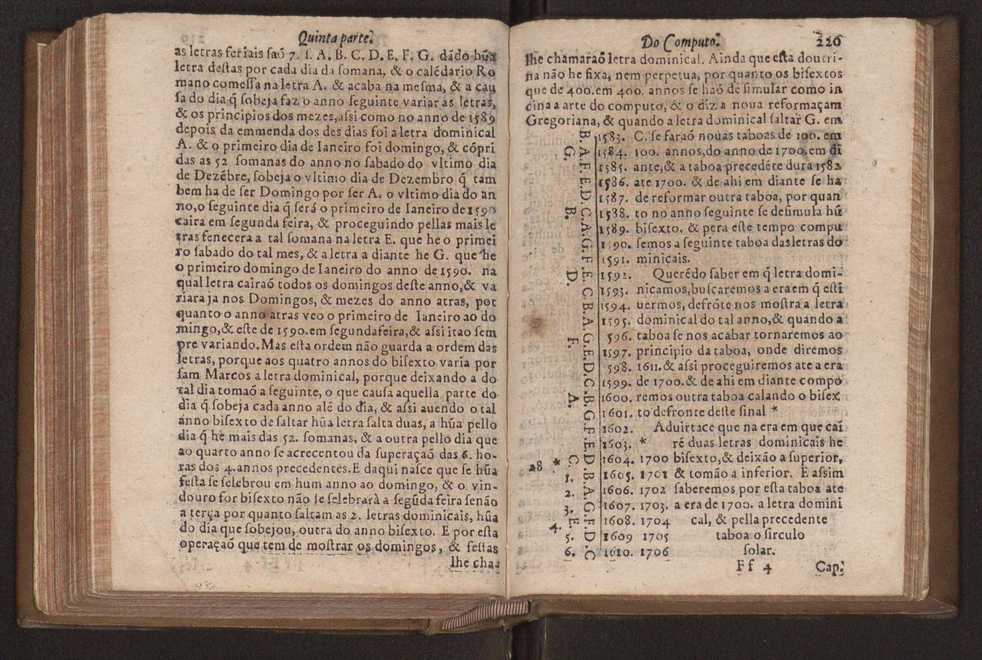 Quinta parte.
as letras feriais saõ 7. s. A. B. C. D. E. F. G. dãdo hũa
letra destas por cada dia da somana, & o calẽdario Ro
mano comessa na letra A. & acaba na mesma, & a cau
sa do dia q̃ sobeja faz o anno seguinte variar as letras,
& os principios dos mezes, assi como no anno de 1589
depois da emmenda dos des dias foi a letra dominical
A. & o primeiro dia de Ianeiro foi domingo, & cõpri
das as 52 somanas do anno no sabado do vltimo dia
de Dezẽbre, sobeja o vltimo dia de Dezembro q̃ tam
bem ha de ser Domingo por ser A. o vltimo dia do an
no, o seguinte dia q̃ será o primeiro de Ianeiro de 1590
caira em segunda feira, & proceguindo pellas mais le
tras fenecera a tal somana na letra E. que he o primei
ro sabado do tal mes, & a letra a diante he G. que he
o primeiro domingo de Ianeiro do anno de 1590. na
qual letra cairaõ todos os domingos deste anno, & va
riara ja nos Domingos, & mezes do anno atras, por
quanto o anno atras veo o primeiro de Ianeiro ao do
mingo, & este de 1590. em segunda feira, & assi itao sem
pre variando. Mas esta ordem não guarda a ordem das
letras, porque aos quatro annos do bisexto varia por
sam Marcos a letra dominical, porque deixando a do
tal dia tomaõ a seguinte, o que causa aquella parte do
dia q̃ sobeja cada anno alẽ do dia, & assi auendo o tal
anno bisexto de saltar hũa letra salta duas, a hũa pello
dia q̃ he mais das 52. somanas, & a outra pello dia que
ao quarto anno se acrecentou da superaçaõ das 6. ho-
ras dos 4. annos precedentes. E daqui nasce que se hũa
festa se selebrou em hum anno ao domingo, & o vin-
douro for bisexto não se selebrarà a segũda feira senão
a terça por quanto saltam as 2. letras dominicais, hũa
do dia que sobejou, outra do anno bisexto. E por esta
operaçaõ que tem de mostrar os domingos, & festas
lhe cha-
Do Computo.
226
lhe chamaraõ letra dominical. Ainda que esta doutri-
na não he fixa, nem perpetua, por quanto os bisextos
que de 400. em 400. annos se haõ de simular como in
cina a arte do computo, & o diz a noua reformaçam
Gregoriana, & quando a letra dominical saltar G. em
B. 1583. C. se faraõ nouas taboas de 100. em
G. A. 1584. 100. annos, do anno de 1700. em di
F. 1585. ante, & a taboa precedẽte dura 1582
E. 1586. ate 1700. & de ahi em diante se ha
D. 1587. de reformar outra taboa, por quan
B. C. 1588. to no anno seguinte se desimula hũ
A. 1589. bisexto, & pera este tempo compu
G. 1590. semos a seguinte taboa das letras do
F. 1591. minicais.
D. E. 1592. Querẽdo saber em q̃ letra domi-
C. 1593. nicamos, buscaremos a era em q̃ esti
B. 1594. uermos, defrõte nos mostra a letra
A. 1595. dominical do tal anno, & quando a
F. G. 596. taboa se nos acabar tornaremos ao
E. 1597. principio da taboa, onde diremos
D. 598. 1611. & assi proceguiremos ate a era
C. 1599. de 1700. & de ahi em diante compo
A. B. 1600. remos outra taboa calando o bisex
G. 1601. to defronte deste sinal *
F. 1602. Aduirtace que na era em que cai
E. 1603. * rẽ duas letras dominicais he
28 * C. D. 1604. 1700 bisexto, & deixão a superior,
1. B. 1605. 1701 & tomão a inferior. E assim
2. A. 1606. 1702 saberemos por esta taboa ate
3. G. 1607. 1703. a era de 1700. a letra domini
4. E. F. 1608. 1704 cal, & pella precedente
5. D. 1609 1705 taboa o sirculo
6. C 1610. 1706 solar.
Ff 4 Cap.